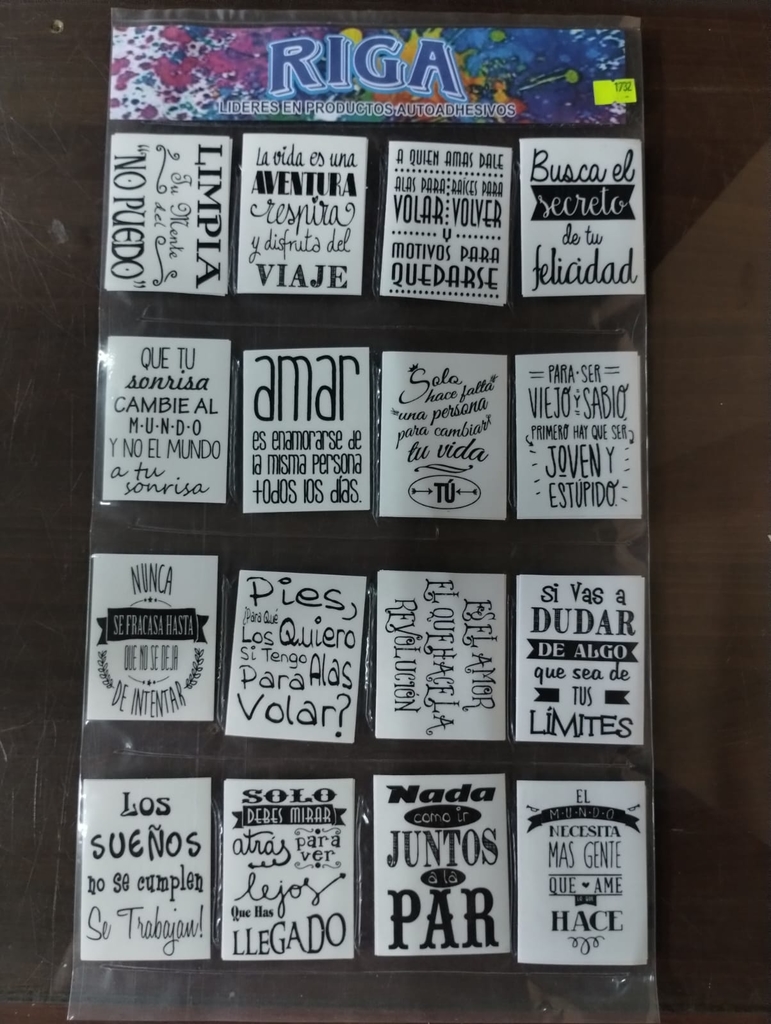 RIGA
LIDERES EN PRODUCTOS AUTOADHESIVOS
1732
LIMPIA
Tu Mente
del
"NO PUEDO"
La vida es una
AVENTURA
respira
y disfruta del
VIAJE
A QUIEN AMAS DALE
ALAS PARA RAÍCES PARA
VOLAR VOLVER
Y
MOTIVOS PARA
QUEDARSE
Busca el
secreto
de tu
felicidad
QUE TU
sonrisa
CAMBIE AL
M·U·N·D·O
Y NO EL MUNDO
a tu
sonrisa
amar
es enamorarse de
la misma persona
todos los días.
Solo
hace falta
una persona
para cambiar
tu vida
TÚ
PARA·SER
VIEJO Y SABIO,
PRIMERO HAY QUE SER
JOVEN Y
ESTÚPIDO.
NUNCA
SE FRACASA HASTA
QUE NO SE DEJA
DE INTENTAR
Pies,
¿Para Qué
Los Quiero
Si Tengo
Para Alas
Volar?
ES EL AMOR
EL QUE HACE LA
REVOLUCIÓN
Si Vas a
DUDAR
DE ALGO
que sea de
TUS
LÍMITES
Los
SUEÑOS
no se cumplen
Se Trabajan!
SOLO
DEBES MIRAR
atrás para
ver
lejos
Que Has
LLEGADO
Nada
como ir
JUNTOS
a la
PAR
EL
M·U·N·D·O
NECESITA
MAS GENTE
QUE AME
HACE